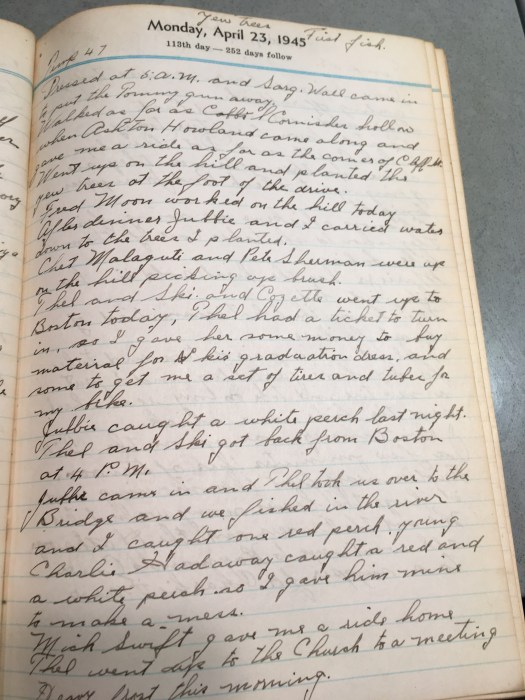 Yew trees
Monday, April 23, 1945 First fish.
113th day — 252 days follow
Temp 47
Dressed at 5: A.M. and Sarg. Wall came in
to put the Tommy gun away.
Walked as far as Cornishes hollow
when Ashton Howland came along and
gave me a ride as far as the corner of Cliff st.
Went up on the hill and planted the
yew trees at the foot of the drive.
Fred Moon worked on the hill today
After dinner Jubbie and I carried water
down to the trees I planted.
Chet Malaguti and Pete Sherman were up
on the hill picking up brush.
Thel and Ski and Cozette went up to
Boston today, Thel had a ticket to turn
in, so I gave her some money to buy
material for Skis graduation dress, and
some to get me a set of tires and tubes for
my bike.
Jubbie caught a white perch last night.
Thel and Ski got back from Boston
at 4 P.M.
Jubbie came in and Thel took us over to the
Bridge and we fished in the river
and I caught one red perch. young
Charlie Hadaway caught a red and
a white perch so I gave him mine
to make a mess.
Mick Swift gave me a ride home
Thel went up to the Church to a meeting
Heavy frost this morning.